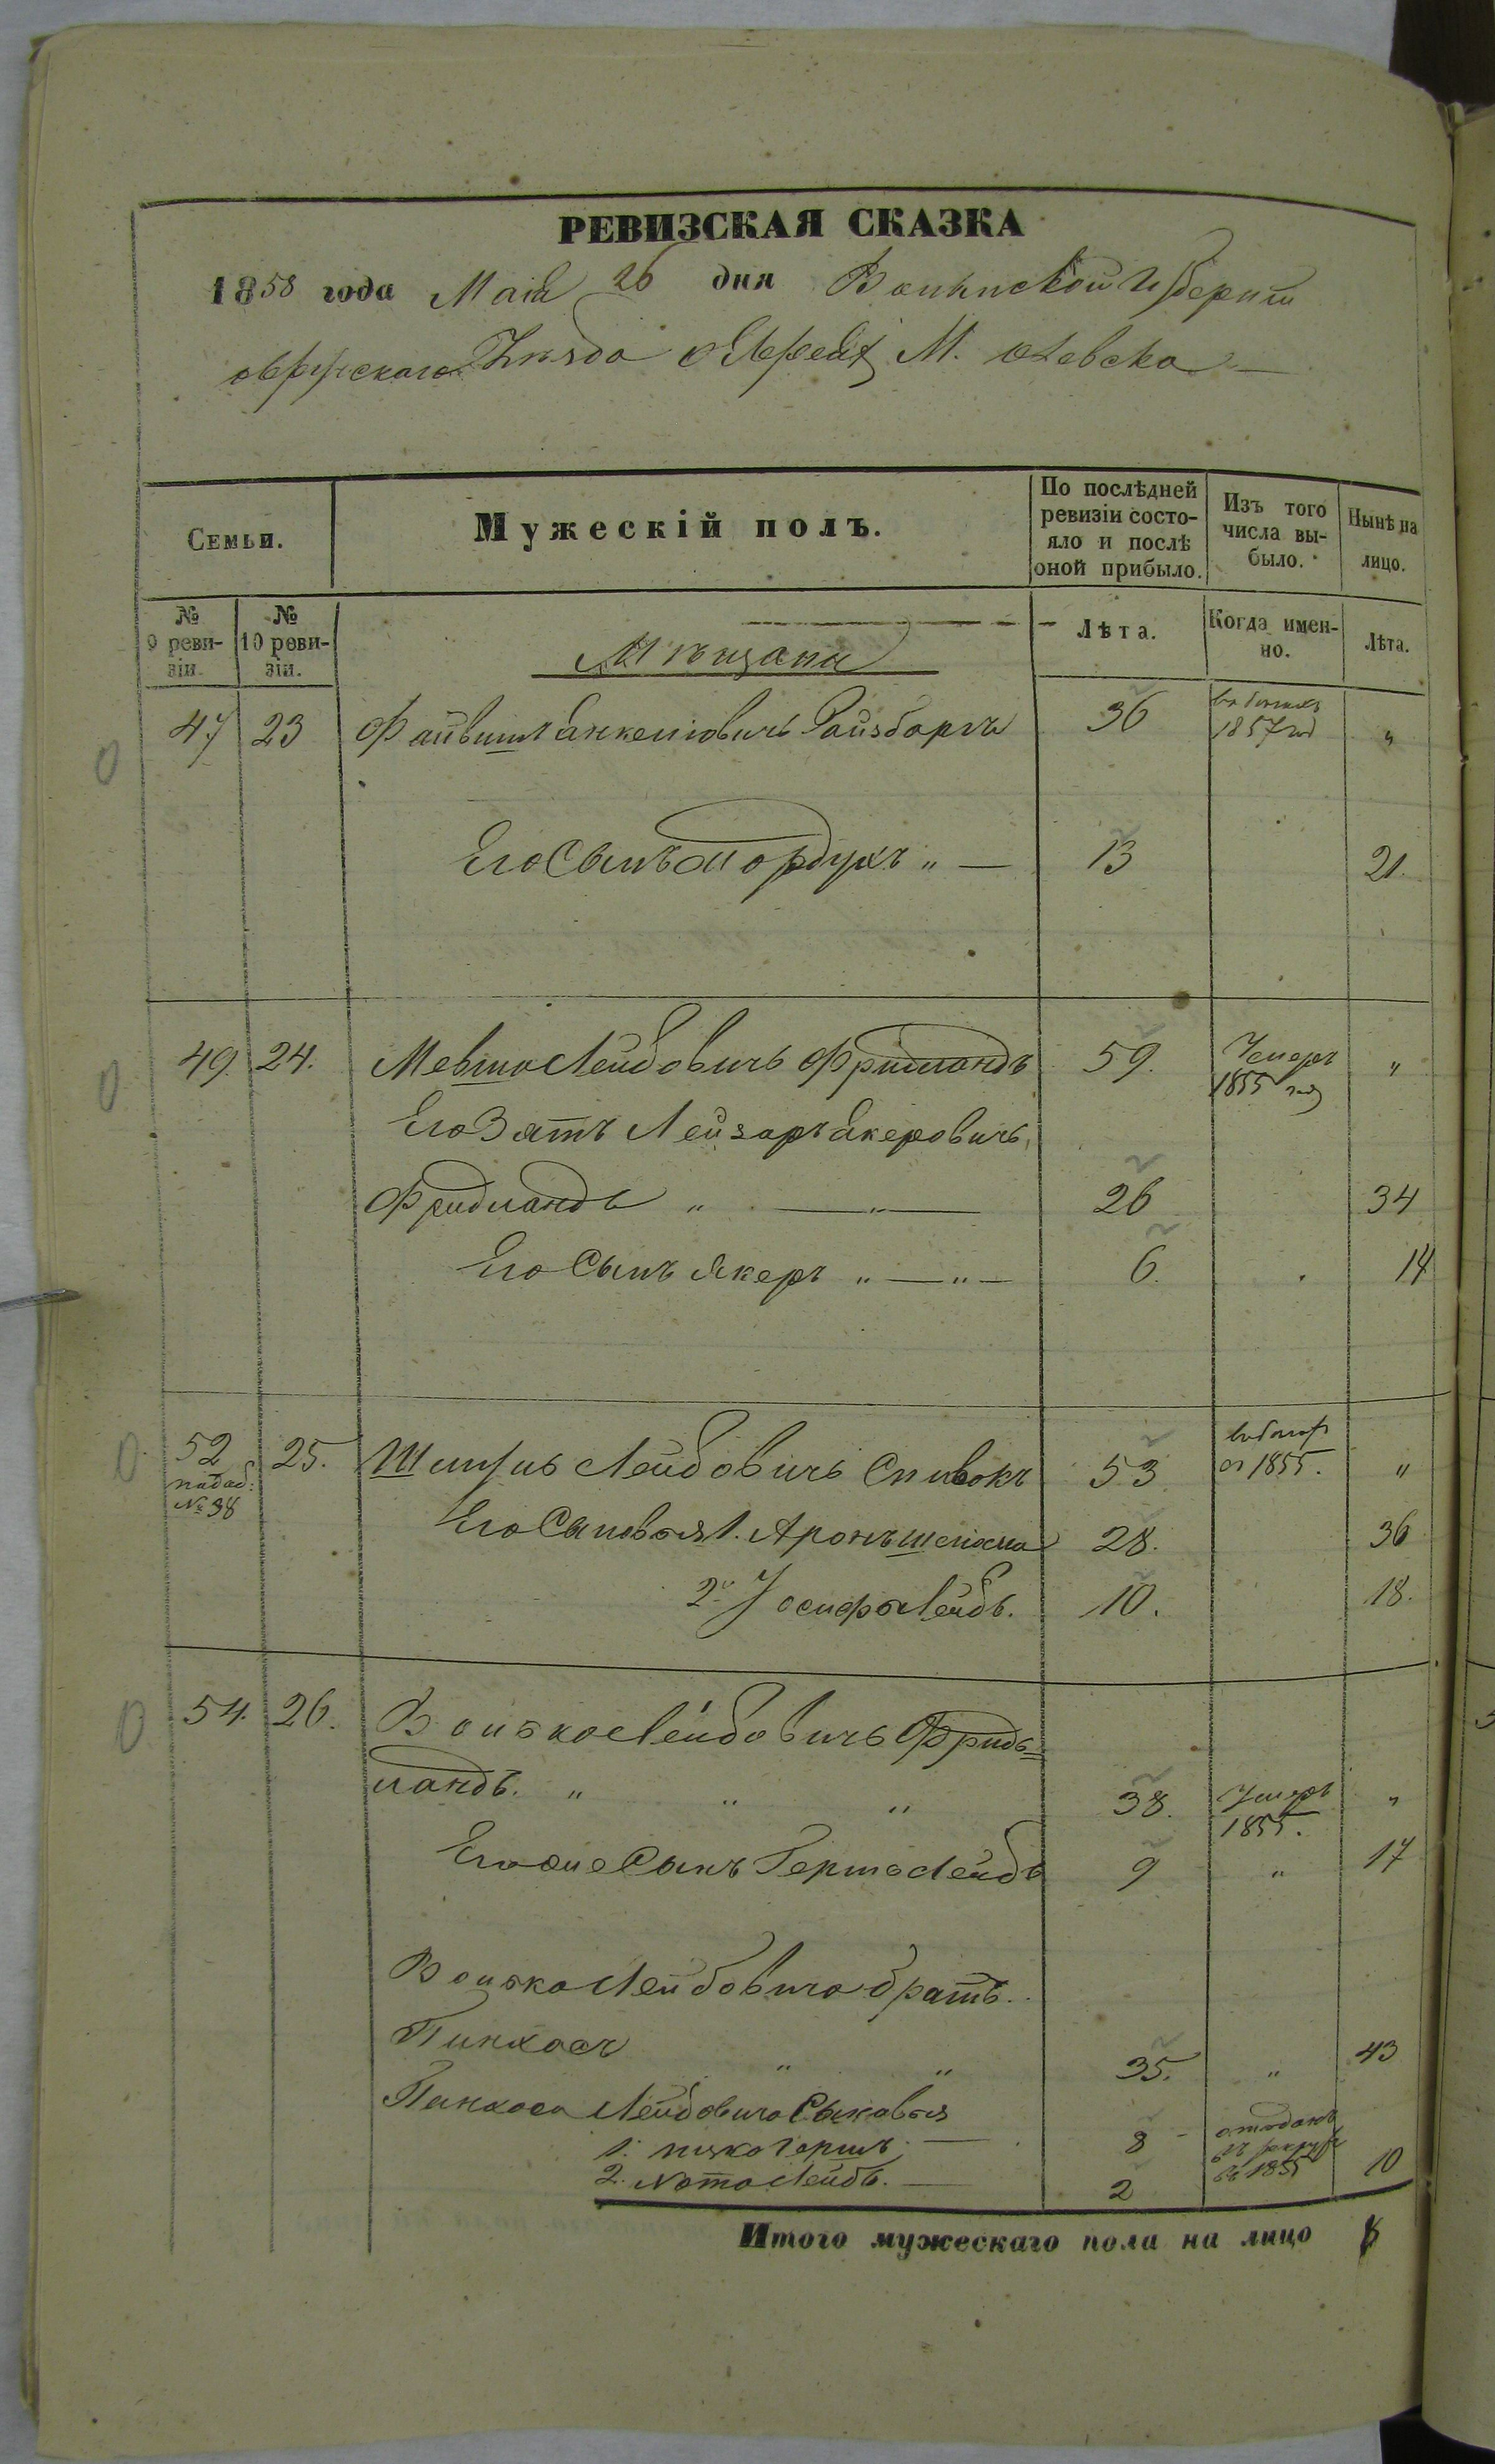 РЕВИЗСКАЯ СКАЗКА
1858 года Маія 26 дня Волынской Губерніи
овручскаго Уѣзда о Евреяхъ М. Олевска
Семьи.
Мужескій полъ.
По послѣдней ревизіи состояло и послѣ оной прибыло.
Изъ того числа выбыло.
Нынѣ на лицо.
№ 9 ревизіи.
№ 10 ревизіи.
Мѣщане
Лѣта.
Когда именно.
Лѣта.
47 23 Файвишъ Янкелiовичъ Ройзбаргъ 36 1857 год "
Его Сынъ Мордухъ " — 13 21.
49. 24. Мевша Лейбовичъ Фридландъ 59. Умеръ 1855 год "
Его Зять Лейзоръ Якеровичъ
Фридландъ " — " — 26 34
Его Сынъ Якеръ " — " — 6. 14
52 25. Шмуль Лейбовичъ Спивокъ 53. 1855. "
№ 38
Его Сыновья 1. Аронъ Шлiома 28. 36
2. Іосифъ Лейбъ. 10. 18.
54. 26. Волько Лейбовичъ Фридь=
ландъ. " " " 38. Умеръ 1855. "
Его же Сынъ Гершъ Лейбъ 9 " 17
Волька Лейбовича братъ.
Пинхасъ " " 35. " 43
Пинхоса Лейбовича Сыновья
1. Ицко Гершъ. — 8 отданъ въ рекруты въ 1855
2. Нота Лейбъ. — 2 10
Итого мужескаго пола на лицо 8